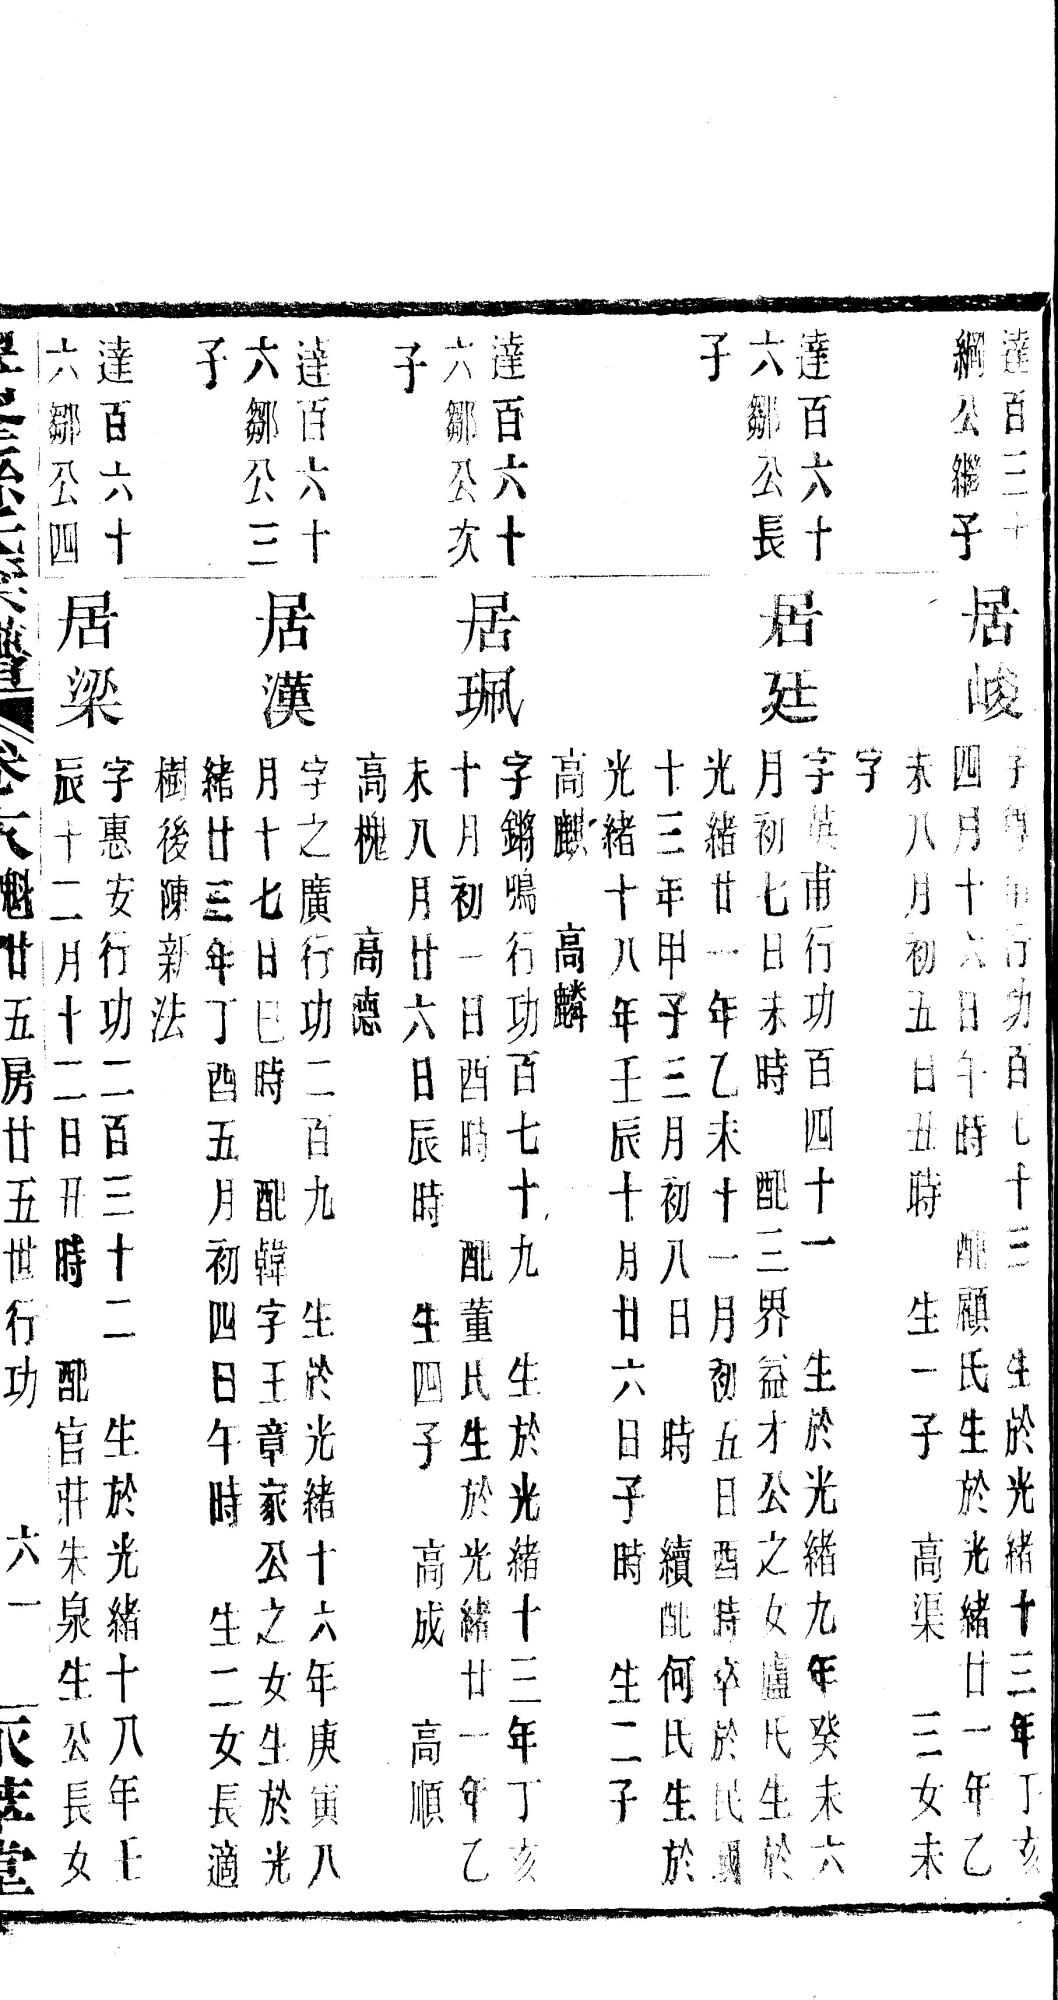 達百三十
綱公繼子
居峻
字 行功百七十三 生於光緒十三年丁亥
四月十六日午時 配顧氏生於光緒廿一年乙
未八月初五日丑時 生一子 高渠 三女未
字
達百六十
六鄒公長
子
居廷
字英甫行功百四十一 生於光緒九年癸未六
月初七日未時 配三界益才公之女盧氏生於
光緒廿一年乙未十一月初五日酉時卒於民國
十三年甲子三月初八日 時 續配何氏生於
光緒十八年壬辰十月廿六日子時 生二子
高麒 高麟
達百六十
六鄒公次
子
居珮
字鏘鳴行功百七十九 生於光緒十三年丁亥
十月初一日酉時 配董氏生於光緒廿一年乙
未八月廿六日辰時 生四子 高成 高順
高槐 高德
達百六十
六鄒公三
子
居漢
字之廣行功二百九 生於光緒十六年庚寅八
月十七日巳時 配韓字王章家公之女生於光
緒廿三年丁酉五月初四日午時 生二女長適
樹後陳新法
達百六十
六鄒公四
居梁
字惠安行功二百三十二 生於光緒十八年壬
辰十二月十二日丑時 配官莊朱泉生公長女
卷 魁廿五房廿五世行功 六一 堂